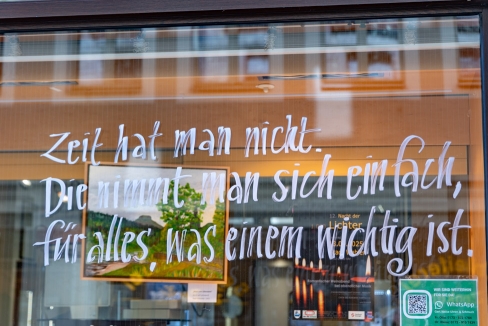 Zeit hat man nicht.
Die nimmt man sich einfach,
für alles, was einem wichtig ist.
12. Nacht der
Lichter
WhatsApp